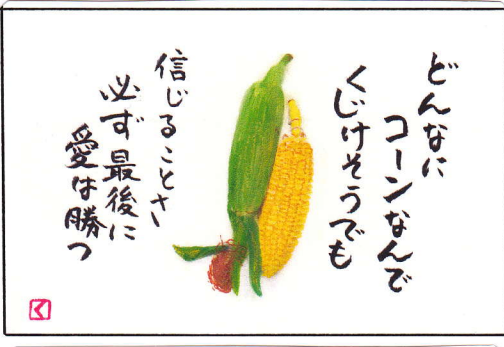 どんなに
コーンなんで
くじけそうでも
信じることさ
必ず最後に
愛は勝つ
く